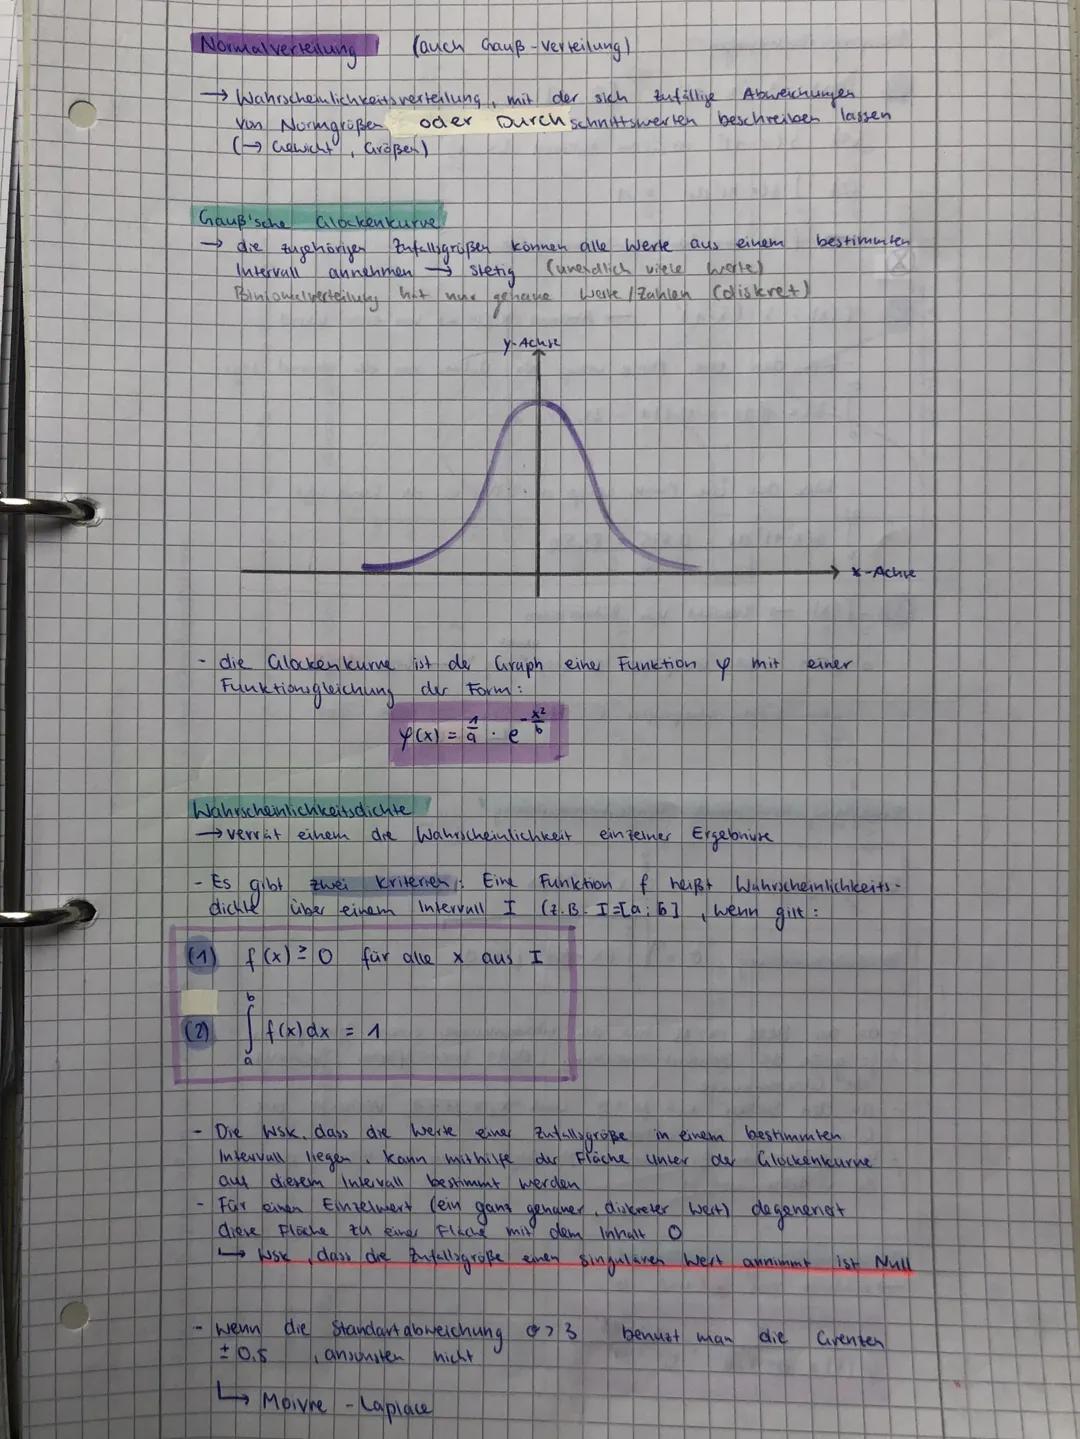 Normalverteilung (auch Gauß-Verteilung)
→ Wahrscheinlichkeitsverteilung, mit der sich zufällige Abweichungen
von Normgrößen oder Durchschnittswerten beschreiben lassen
(→ Gewicht, Größen)
Gauß'sche Glockenkurve
→ die zugehörigen Zufallsgrößen können alle Werte aus einem bestimmten
Intervall annehmen → stetig (unendlich viele Werte)
Binomialverteilung hat nur genaue Werte/Zahlen (diskret)
y-Achse
x-Achse
- die Glockenkurve ist de Graph eine Funktion φ mit einer
Funktionsgleichung der Form:
φ(x) = 1/a · e^(-x²/b)
Wahrscheinlichkeitsdichte
→ verrät einem die Wahrscheinlichkeit einzelner Ergebnisse
- Es gibt zwei Kriterien: Eine Funktion f heißt Wahrscheinlichkeits-
dichte über einem Intervall I (z.B. I=[a;b], wenn gilt:
(1) f(x) ≥ 0 für alle x aus I
(2) ∫_a^b f(x)dx = 1
- Die Wsk. dass die Werte einer Zufallsgröße in einem bestimmten
Intervall liegen, kann mithilfe der Fläche unter der Glockenkurve
aus diesem Intervall bestimmt werden
- Für einen Einzelwert (ein ganz genauer, diskreter Wert) degeneriert
diese Fläche zu einer Fläche mit dem Inhalt 0
↳ Wsk, dass die Zufallsgröße einen singulären Wert annimmt ist Null
- wenn die Standartabweichung σ > 3 benutzt man die Grenzen
± 0,5, ansonsten nicht
↳ Moivre - Laplace